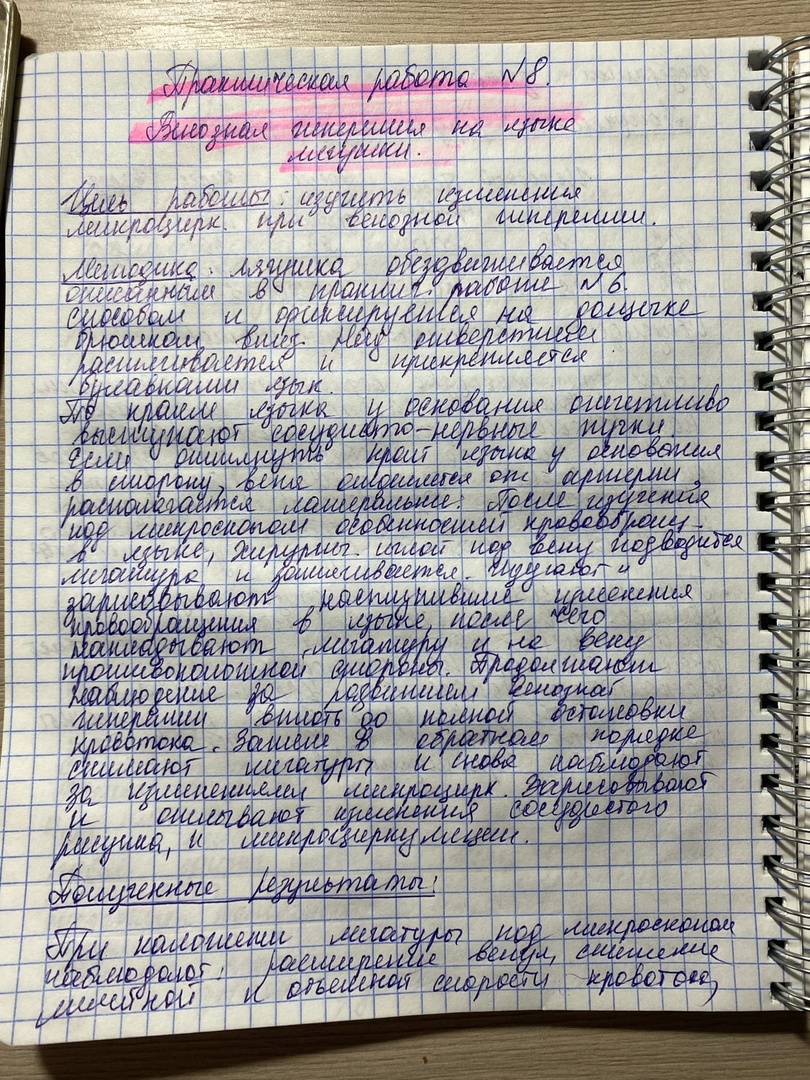 Практическая работа №8.
Венозная гиперемия на языке
лягушки.
Цель работы: изучить изменения
микроцирк. при венозной гиперемии.
Методика: лягушка обездвиживается
описанным в практич. работе №6.
способом и фиксируется на дощечке
брюшком вниз. Над отверстием
растягивается и прикрепляется
булавками язык.
По краям языка у основания отчетливо
выступают сосудисто-нервные пучки.
Если оттянуть край языка у основания
в сторону, вена отделяется от артерии,
располагается латеральнее. После изучения
под микроскопом особенностей кровообращ-
в языке, хирургич. иглой под вену подводится
лигатура и затягивается. Изучают и
зарисовывают наступившие изменения
кровообращения в языке, после чего
накладывают лигатуру и на вену
противоположной стороны. Продолжают
наблюдение за развитием венозной
гиперемии вплоть до полной остановки
кровотока. Затем в обратном порядке
снимают лигатуры и снова наблюдают
за изменениями микроцирк. Зарисовывают
и описывают изменения сосудистого
рисунка, и микроциркуляции.
Полученные результаты:
При наложении лигатуры под микроскопом
наблюдают: расширение венул, снижение
линейной и объемной скорости кровотока,